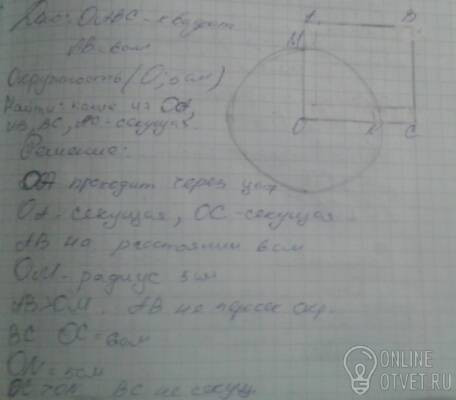 Дано: OABC - квадрат
AB = 6см
Окружность (O; 5см)
Найти: какие из OA,
AB, BC, AC - секущая.
Решение:
OA проходит через центр
OA - секущая, OC - секущая
AB на расстоянии 6см
OM - радиус 5см
AB > OM. AB не пересек окр.
BC OC = 6см
ON = 5см
OC > ON BC не секущ.
A B
M
O K C
ONLINE
OTVET.RU